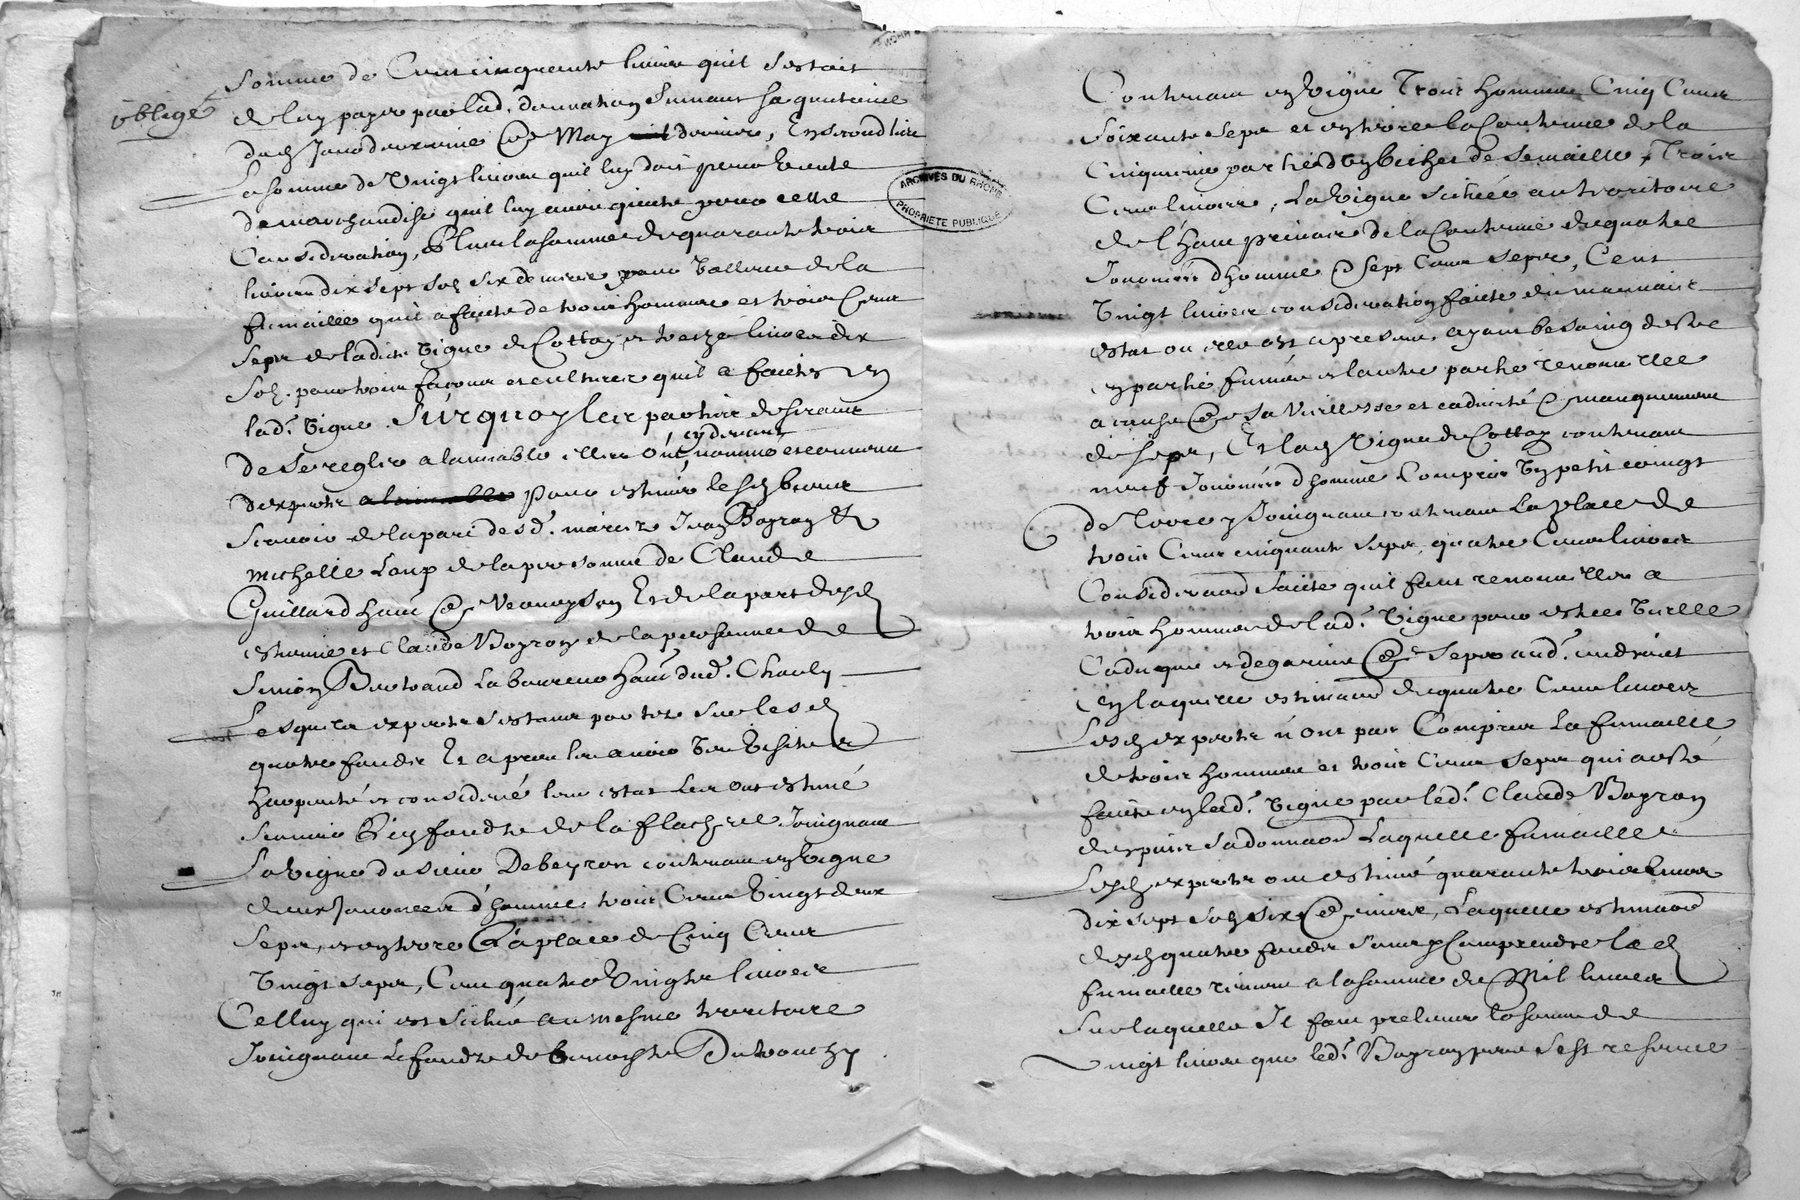 obligé
somme de Cent cinquante livres quil sestoit
de luy payer par lad. donnation suivant sa quittance
du ... jour deuxieme de May dernier, En second lieu
La somme de Vingt livres quil luy doit pour vente
de marchandise quil luy avoit quitté pour cette
Consideration, Plus la somme de quarante trois
livres dix sept solz six deniers pour valleur de la
fumaille quil a faite de trois hommes et trois Cent
seps de ladite Vigne de Cottay et treize livres dix
solz pour trois façons et cultures quil a faites en
lad. Vigne. Surquoy les parties desirant
de se regler a lamiable elles ont cy devant nommé et convenu
dexpertz a lamiable pour estimer lesd biens
Scavoir de la part desd. mariez Jean Boyron &
michelle Loup de la personne de Claude
Guillard hant de Vernayson Et de la part desd
estienne et Claude Boyron de la personne de
Simon Bertrand Laboureur hant dud. Charly
Lesquelz expertz sestant portez sur lesd
quatre fondz Et apres les avoir veu visité
harpenté et consideré leur estat Les ont estimé
scavoir ... fondz de la flachere Joignant
la vigne du sieur Debeyron contenant en vigne
deux Journees d'homme trois Cent Vingt deux
seps, et en terre La place de Cinq Cent
Vingt seps, Cent quatre Vingts livres
Celluy qui est scitué au mesme territoire
Joignant le fondz de benoiste Dutronchy
ARCHIVES DU RHONE
PROPRIETE PUBLIQUE
Contenant en Vigne Trois hommes Cinq Cent
soixante seps et en terre la Contenue de la
cinquieme partie d'un bichet de semaille, Trois
Cent livres, La Vigne scituée au territoire
de l'haut perinoir de la Contenue de quatre
Journées d'homme & sept Cent seps, Cent
Vingt livres consideration faite du mauvais
estat ou elle est a present, ayant besoing destre
en partie fumée et lautre partie renouvellée
a cause de sa vieillesse et caducité & manquement
de seps, Et lad Vigne de Cottay contenant
neuf Journées d'homme Compris un petit coingt
de terre y Joignant contenant La place de
trois Cent cinquante seps, quatre Cent livres
Consideration faite quil faut renouveller a
trois hommes de lad. Vigne pour estre vieille
Caduque et degarnie de seps aud. endroict
en laquelle estimation de quatre Cent livres
Lesd expertz n'ont pas Compris La fumaille
de trois hommes et trois Cent seps qui a esté
faite en lad. Vigne par led. Claude Boyron
despuis sa donnaon Laquelle fumaille
Lesd expertz ont estimé quarante trois livres
dix sept solz six deniers, Laquelle estimaon
desd quatre fondz sans y Comprendre lad
fumaille revient a la somme de Mil livres
sur laquelle Il faut prelever la somme de
Vingt livres que led. Boyron pere sest reservée